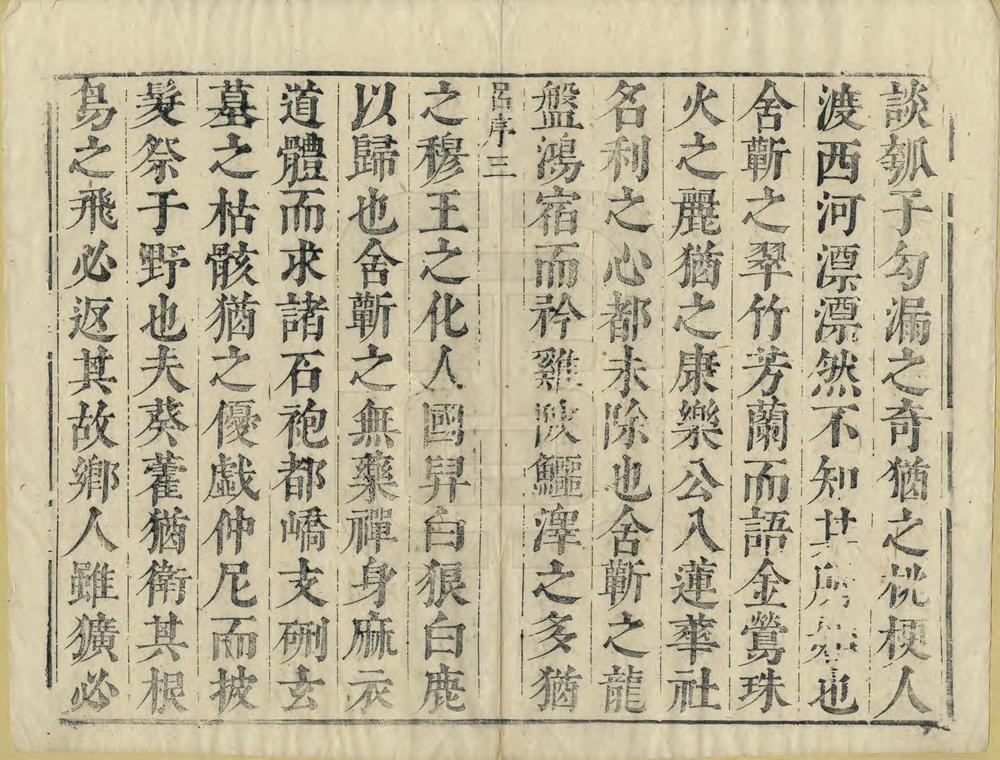 談瓠子勾漏之奇猶之桃梗人
渡西河漂漂然不知其所終也
舍蘄之翠竹芳蘭而語金鶯珠
火之麗猶之康樂公入蓮華社
名利之心都未除也舍蘄之龍
盤鴻宿而矜雞陂鱷澤之多猶
呂序 三
之穆王之化人國昇白狼白鹿
以歸也舍蘄之無藥禪身麻衣
道體而求諸石袍都嶠支硎玄
墓之枯骸猶之優戲仲尼而披
髮祭于野也夫葵藿猶衛其根
鳥之飛必返其故鄉人雖獷必